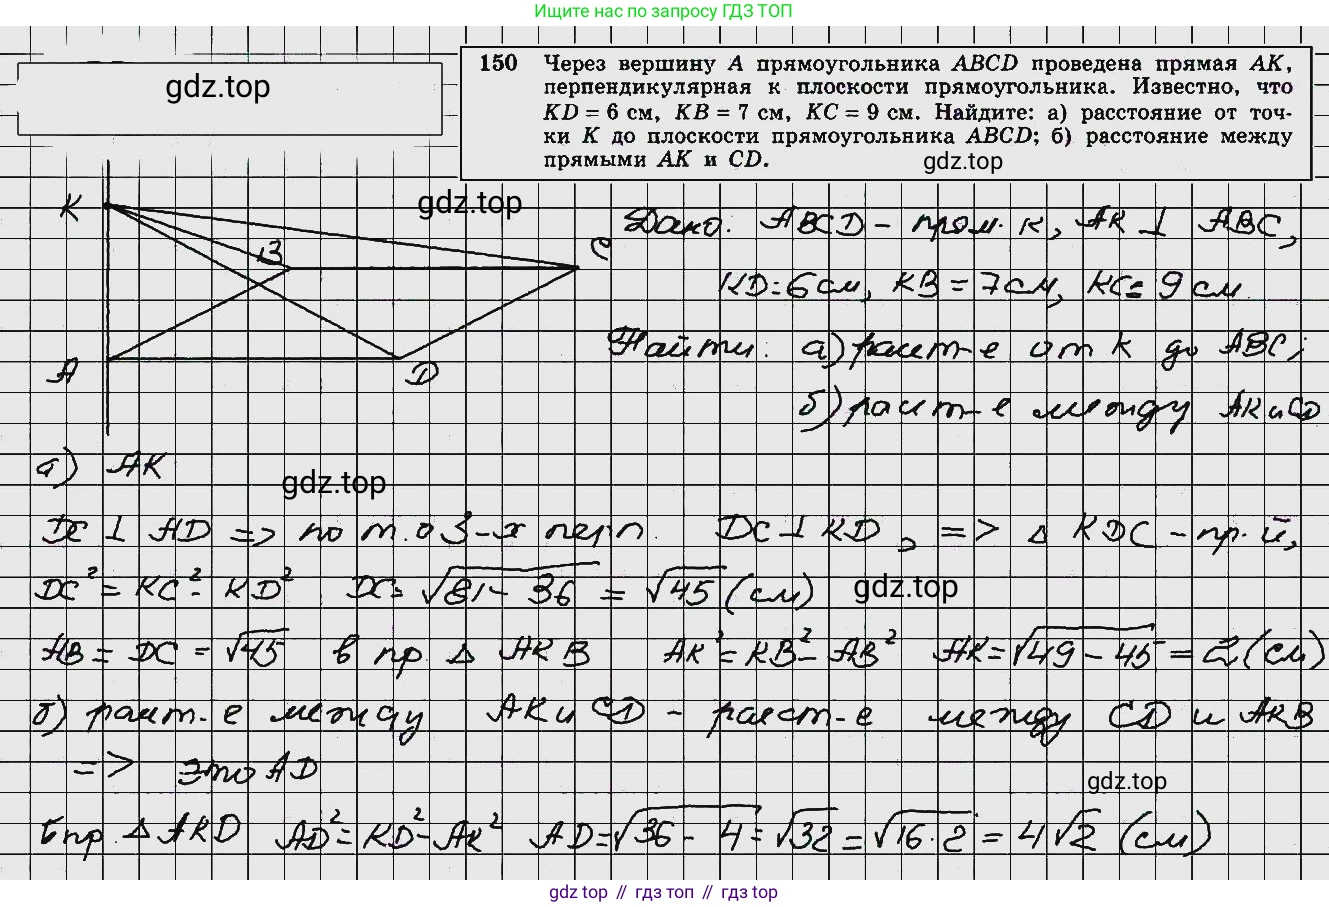 Ищите нас по запросу ГДЗ ТОП
gdz.top
150 Через вершину A прямоугольника ABCD проведена прямая AK,
перпендикулярная к плоскости прямоугольника. Известно, что
KD = 6 см, KB = 7 см, KC = 9 см. Найдите: а) расстояние от точ-
ки K до плоскости прямоугольника ABCD; б) расстояние между
прямыми AK и CD.
gdz.top
K
B
C
A
D
gdz.top
Дано: ABCD – прям.к, AK ⊥ ABC,
KD=6см, KB=7см, KC=9см
Найти: а) раст-е от K до ABC;
б) раст-е между AK и CD
а) AK
gdz.top
DC ⊥ AD => по т. о 3-х перп. DC ⊥ KD, => △ KDC – пр.й,
DC² = KC² - KD² DC = √81-36 = √45 (см)
gdz.top
AB = DC = √45 в пр △ AKB AK² = KB² - AB² AK = √49-45 = 2 (см)
б) раст-е между AK и CD – расст-е между CD и AKB
=> это AD
gdz.top
В пр. △ AKD AD² = KD² - AK² AD = √36-4 = √32 = √16·2 = 4√2 (см)
gdz top // гдз топ // gdz top